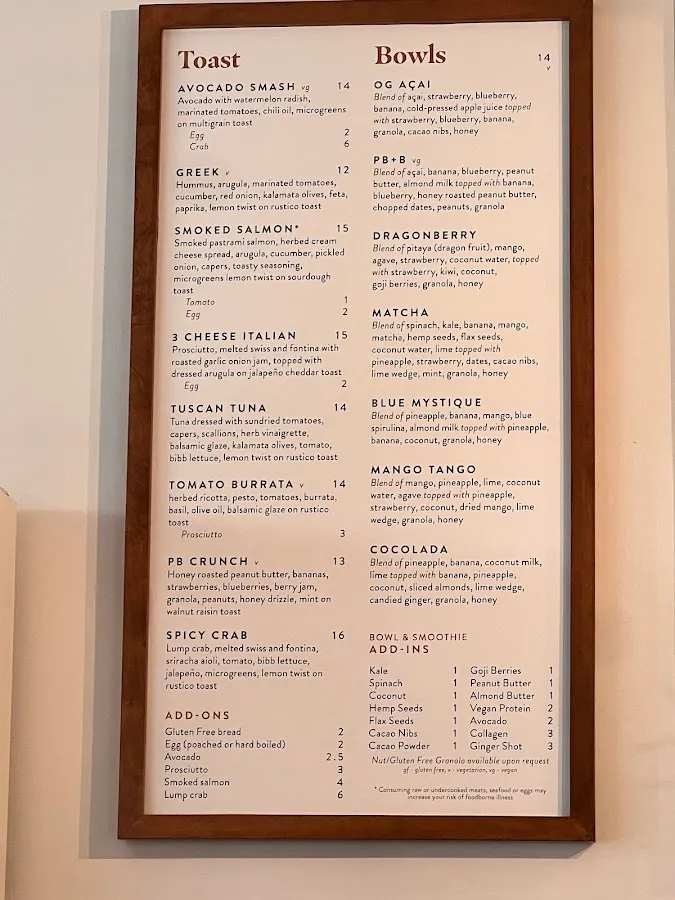 Toast
AVOCADO SMASH vg 14
Avocado with watermelon radish,
marinated tomatoes, chili oil, microgreens
on multigrain toast
Egg 2
Crab 6
GREEK v 12
Hummus, arugula, marinated tomatoes,
cucumber, red onion, kalamata olives, feta,
paprika, lemon twist on rustico toast
SMOKED SALMON* 15
Smoked pastrami salmon, herbed cream
cheese spread, arugula, cucumber, pickled
onion, capers, toasty seasoning,
microgreens lemon twist on sourdough
toast
Tomato 1
Egg 2
3 CHEESE ITALIAN 15
Prosciutto, melted swiss and fontina with
roasted garlic onion jam, topped with
dressed arugula on jalapeño cheddar toast
Egg 2
TUSCAN TUNA 14
Tuna dressed with sundried tomatoes,
capers, scallions, herb vinaigrette,
balsamic glaze, kalamata olives, tomato,
bibb lettuce, lemon twist on rustico toast
TOMATO BURRATA v 14
herbed ricotta, pesto, tomatoes, burrata,
basil, olive oil, balsamic glaze on rustico
toast
Prosciutto 3
PB CRUNCH v 13
Honey roasted peanut butter, bananas,
strawberries, blueberries, berry jam,
granola, peanuts, honey drizzle, mint on
walnut raisin toast
SPICY CRAB 16
Lump crab, melted swiss and fontina,
sriracha aioli, tomato, bibb lettuce,
jalapeño, microgreens, lemon twist on
rustico toast
ADD-ONS
Gluten Free bread 2
Egg (poached or hard boiled) 2
Avocado 2.5
Prosciutto 3
Smoked salmon 4
Lump crab 6
Bowls 14
v
OG AÇAI
Blend of açai, strawberry, blueberry,
banana, cold-pressed apple juice topped
with strawberry, blueberry, banana,
granola, cacao nibs, honey
PB+B vg
Blend of açai, banana, blueberry, peanut
butter, almond milk topped with banana,
blueberry, honey roasted peanut butter,
chopped dates, peanuts, granola
DRAGONBERRY
Blend of pitaya (dragon fruit), mango,
agave, strawberry, coconut water, topped
with strawberry, kiwi, coconut,
goji berries, granola, honey
MATCHA
Blend of spinach, kale, banana, mango,
matcha, hemp seeds, flax seeds,
coconut water, lime topped with
pineapple, strawberry, dates, cacao nibs,
lime wedge, mint, granola, honey
BLUE MYSTIQUE
Blend of pineapple, banana, mango, blue
spirulina, almond milk topped with pineapple,
banana, coconut, granola, honey
MANGO TANGO
Blend of mango, pineapple, lime, coconut
water, agave topped with pineapple,
strawberry, coconut, dried mango, lime
wedge, granola, honey
COCOLADA
Blend of pineapple, banana, coconut milk,
lime topped with banana, pineapple,
coconut, sliced almonds, lime wedge,
candied ginger, granola, honey
BOWL & SMOOTHIE
ADD-INS
Kale 1 Goji Berries 1
Spinach 1 Peanut Butter 1
Coconut 1 Almond Butter 1
Hemp Seeds 1 Vegan Protein 2
Flax Seeds 1 Avocado 2
Cacao Nibs 1 Collagen 3
Cacao Powder 1 Ginger Shot 3
Nut/Gluten Free Granola available upon request
gf - gluten free, v - vegetarian, vg - vegan
* Consuming raw or undercooked meats, seafood or eggs may
increase your risk of foodborne illness